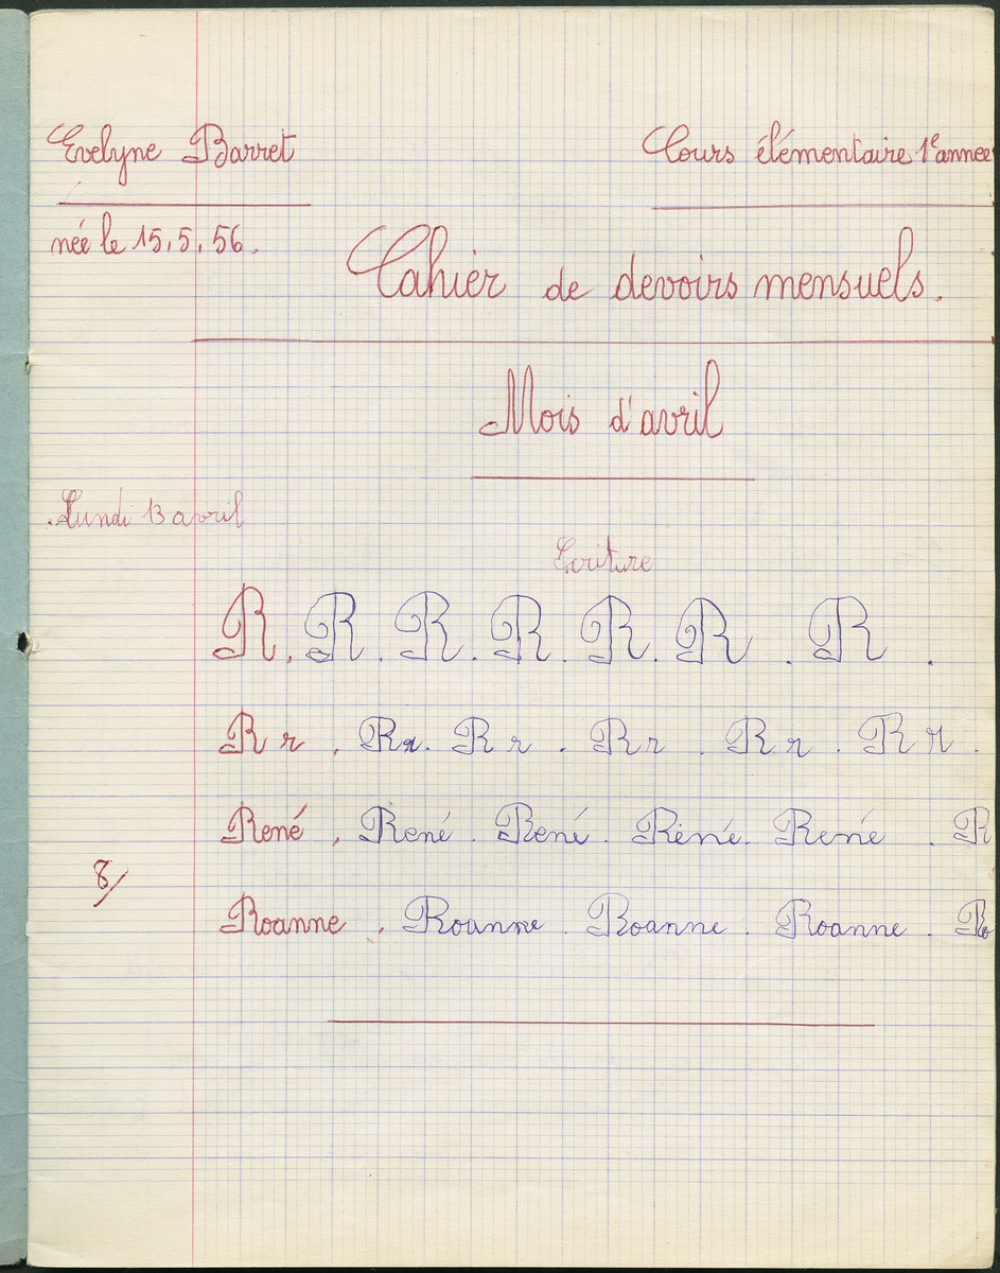 Evelyne Barret
Cours élémentaire 1e année
née le 15.5.56.
Cahier de devoirs mensuels.
Mois d'avril
Lundi 13 avril
Ecriture
R. R. R. R. R. R. R.
R r. R r. R r. R r. R r. R r.
René. René. René. René. René. R
Roanne. Roanne. Roanne. Roanne. Ro
8/